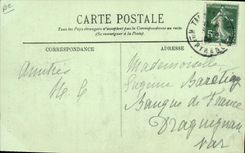 CARTE POSTALE
Tous les Pays étrangers n'acceptent pas la Correspondance au recto.
(Se renseigner à la Poste)
CORRESPONDANCE
ADRESSE
Amitiés
Mademoiselle
Eugénie
Banque de France
Draguignan
Var